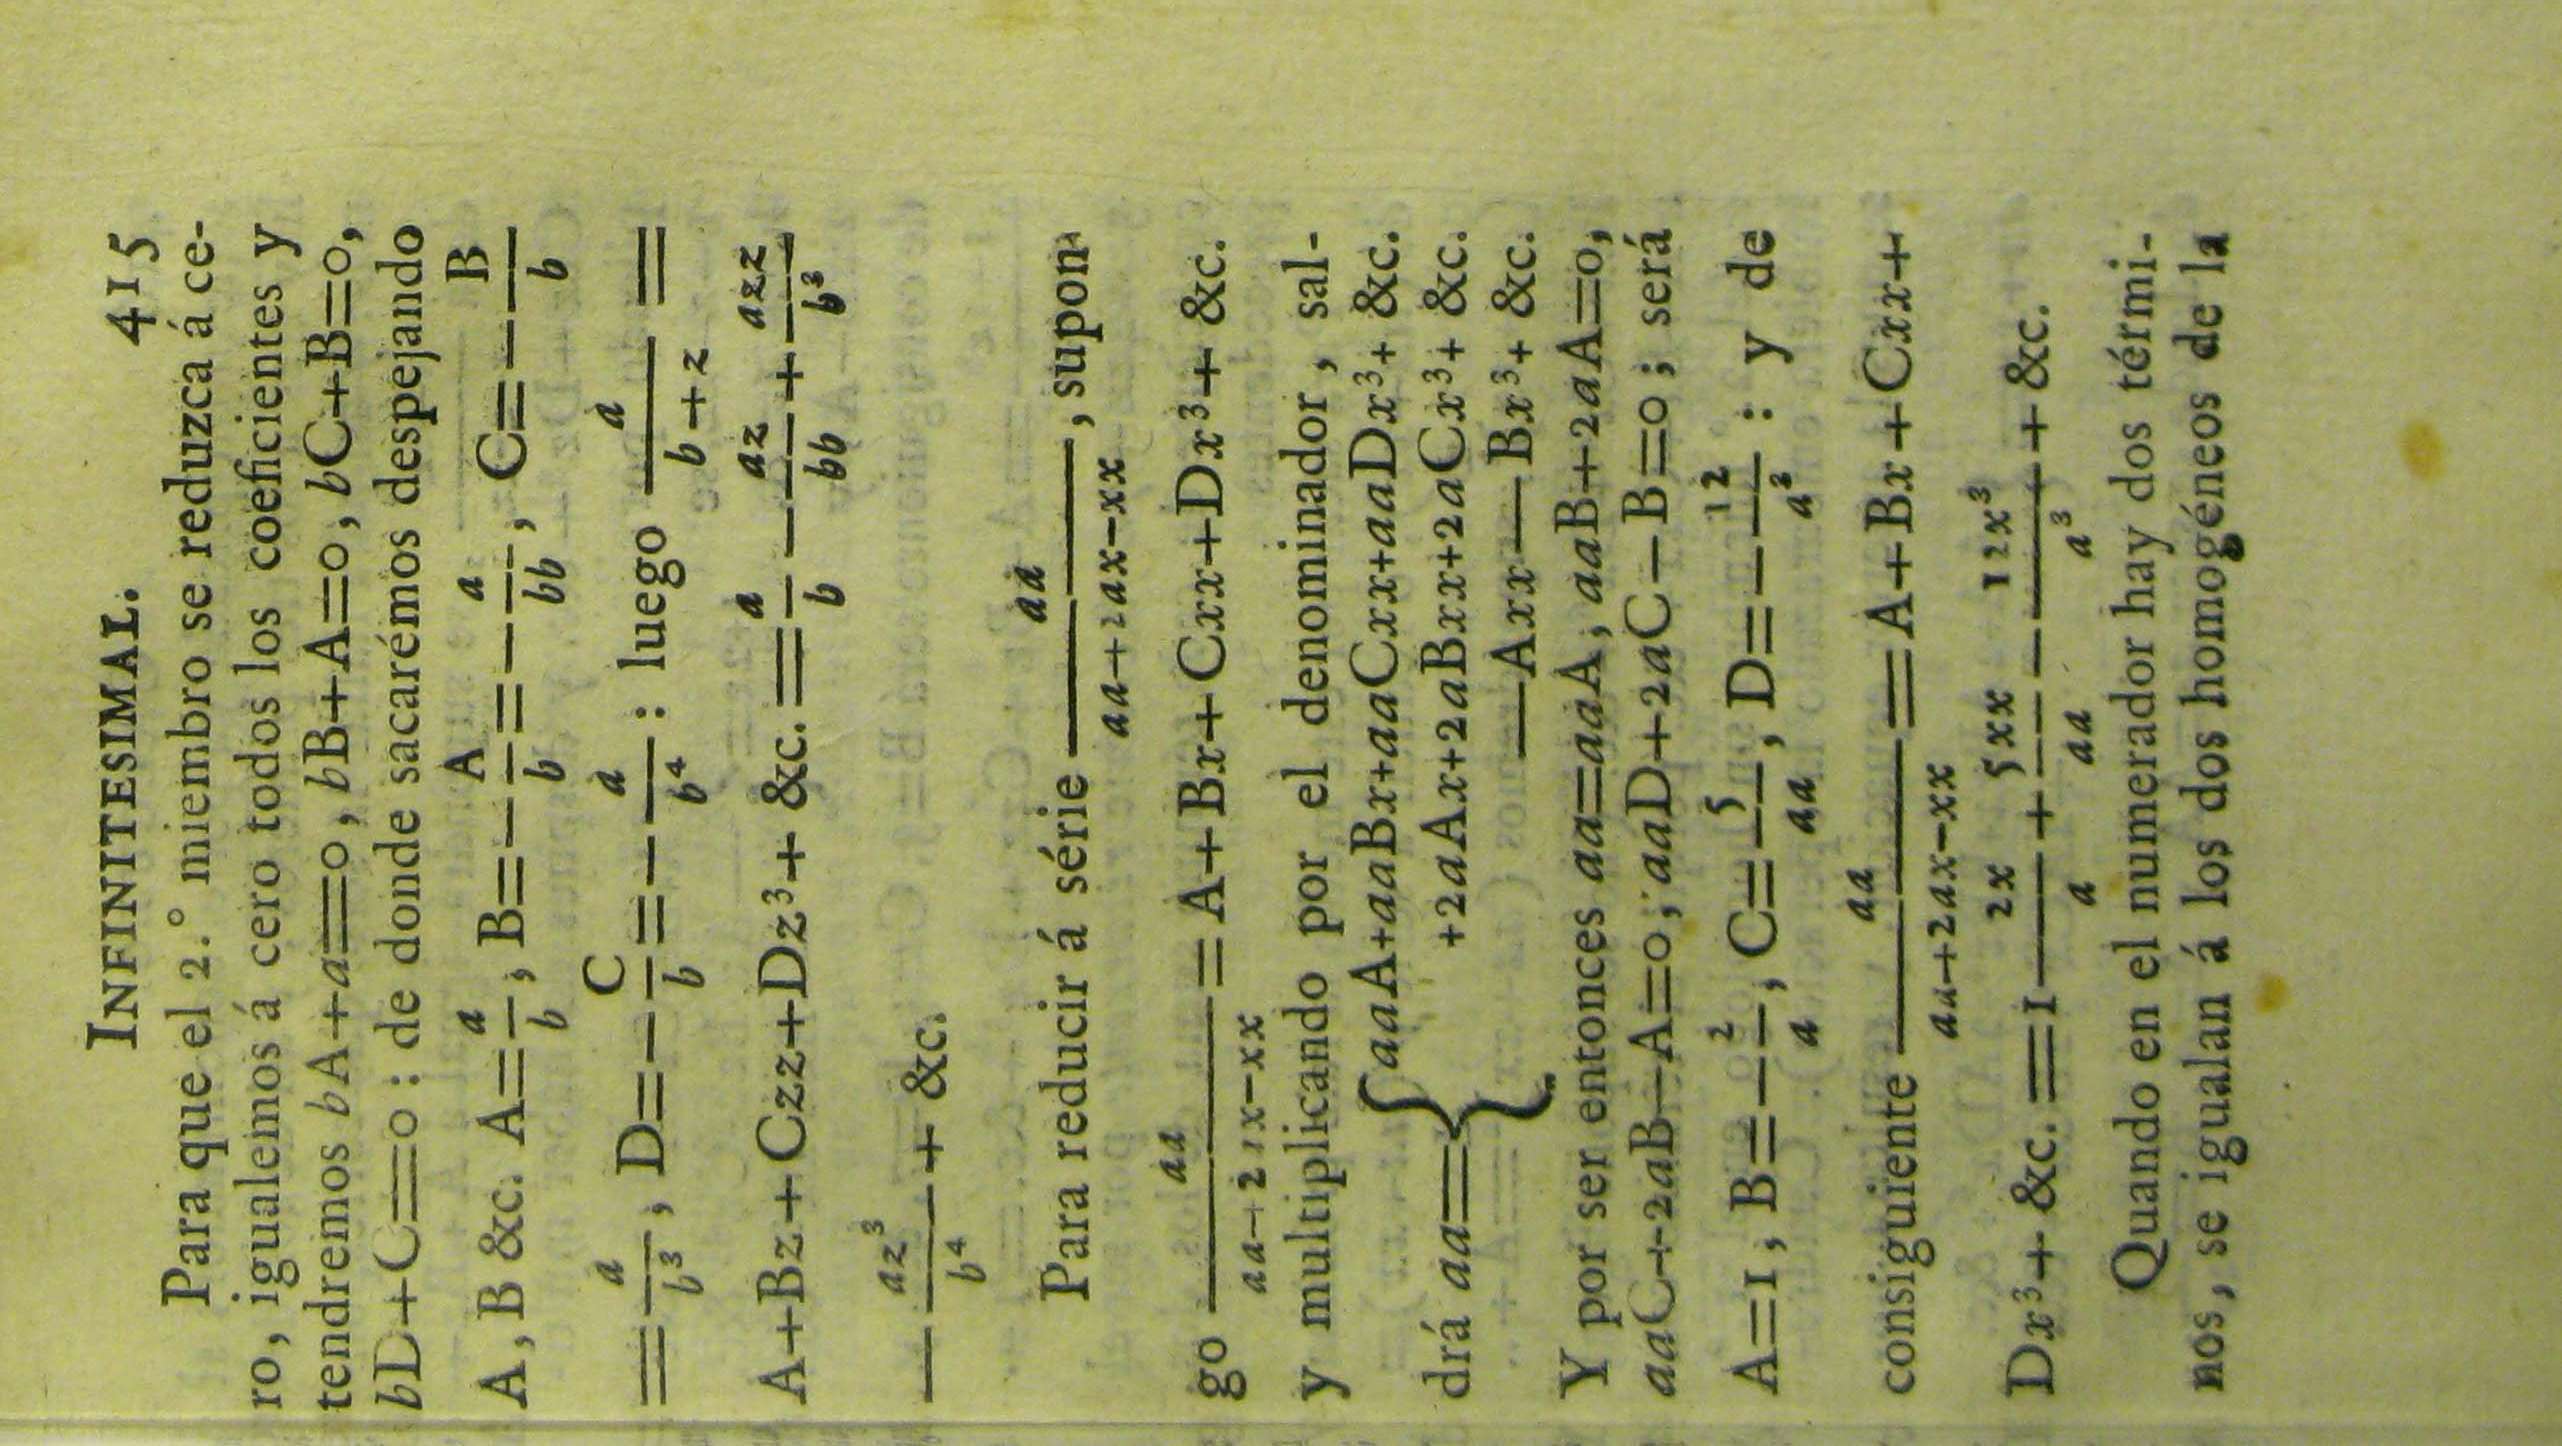 INFINITESIMAL. 415
Para que el 2.º miembro se reduzca á ce-
ro, igualemos á cero todos los coeficientes y
tendremos bA+a=0, bB+A=0, bC+B=0,
bD+C=0 : de donde sacarémos despejando
A, B &c. A=a/b, B=-A/b=-a/bb, C=-B/b
=a/b³, D=-C/b=-a/b⁴ : luego a/b+z =
A+Bz+Czz+Dz³+ &c.=a/b-az/bb+azz/b³
-az³/b⁴+ &c.
Para reducir á série aa/aa+2ax-xx, supon
go aa/aa+2ax-xx=A+Bx+Cxx+Dx³+ &c.
y multiplicando por el denominador, sal-
drá aa={aaA+aaBx+aaCxx+aaDx³+ &c.
+2aAx+2aBxx+2aCx³+ &c.
-Axx-Bx³+ &c.
Y por ser entonces aa=aaA; aaB+2aA=0,
aaC+2aB-A=0; aaD+2aC-B=0; será
A=1, B=-2/a, C=5/aa, D=-12/a³ : y de
consiguiente aa/aa+2ax-xx=A+Bx+Cxx+
Dx³+ &c.=1-2x/a+5xx/aa-12x³/a³+ &c.
Quando en el numerador hay dos térmi-
nos, se igualan á los dos homogéneos de la